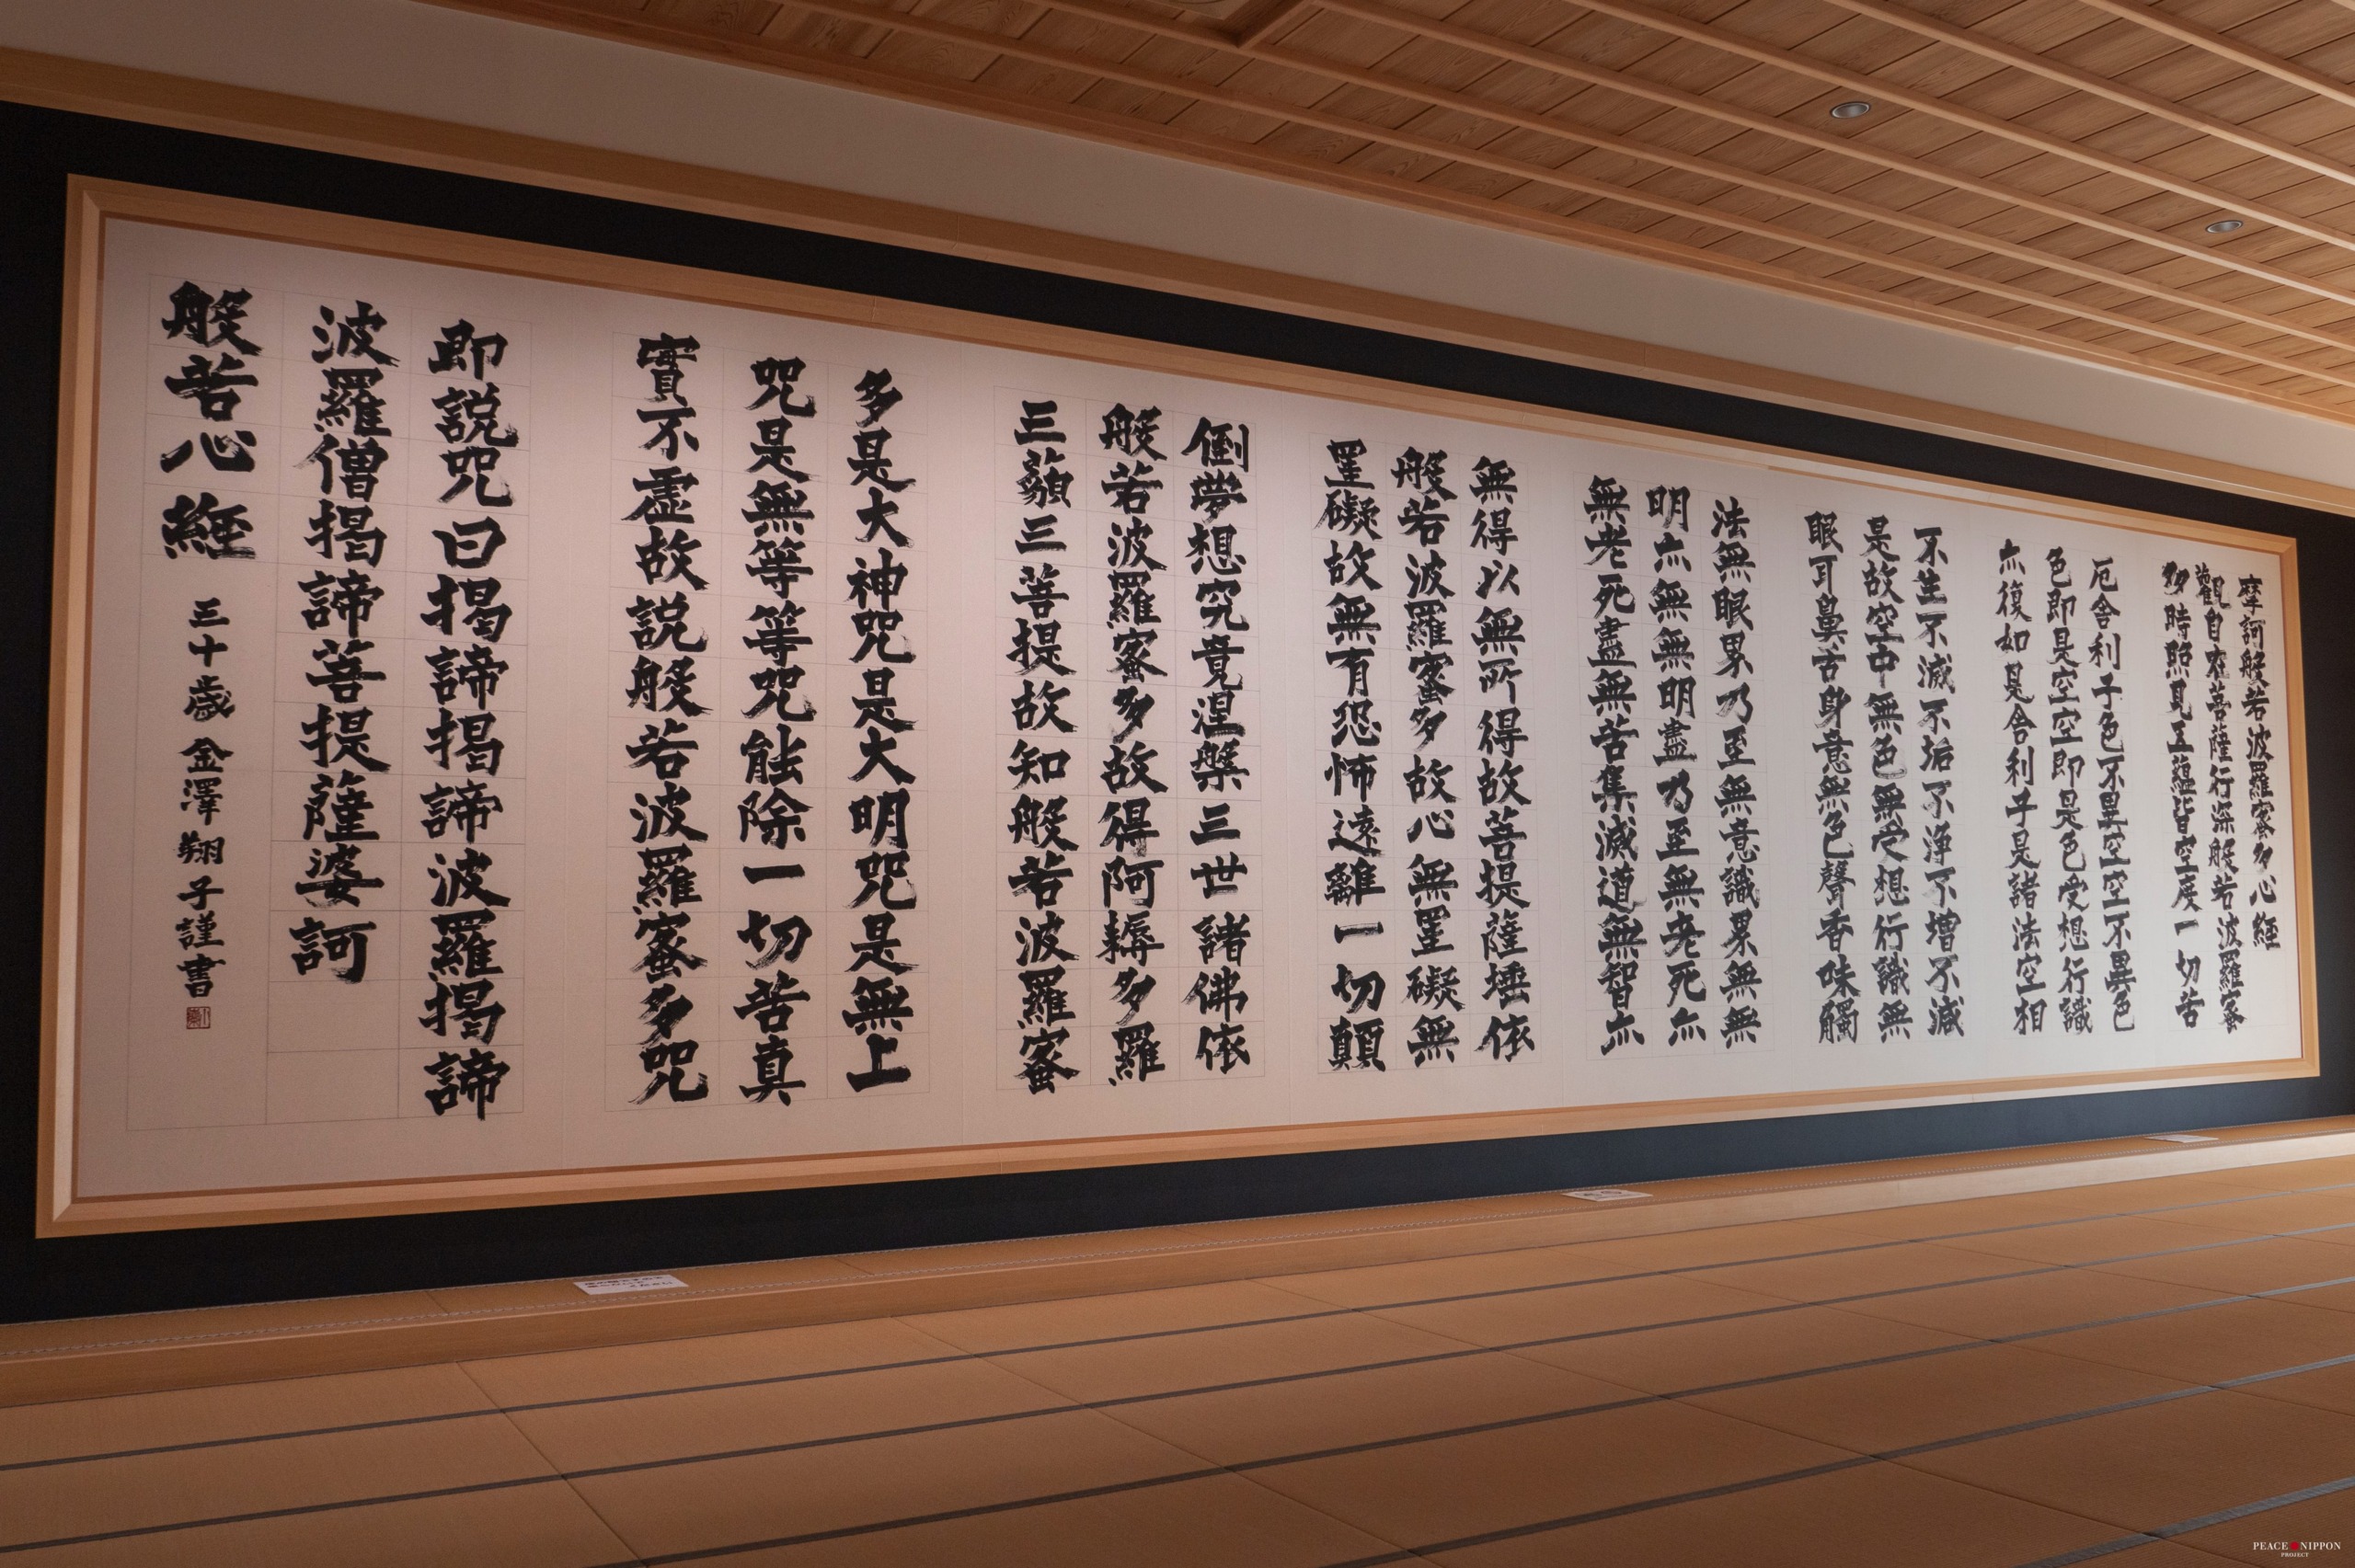 摩訶般若波羅蜜多心經
觀自在菩薩行深般若波羅蜜
多時照見五蘊皆空度一切苦
厄舎利子色不異空空不異色
色即是空空即是色受想行識
亦復如是舎利子是諸法空相
不生不滅不垢不浄不増不減
是故空中無色無受想行識無
眼耳鼻舌身意無色聲香味觸
法無眼界乃至無意識界無無
明亦無無明盡乃至無老死亦
無老死盡無苦集滅道無智亦
無得以無所得故菩提薩埵依
般若波羅蜜多故心無罣礙無
罣礙故無有恐怖遠離一切顛
倒夢想究竟涅槃三世諸佛依
般若波羅蜜多故得阿耨多羅
三藐三菩提故知般若波羅蜜
多是大神咒是大明咒是無上
咒是無等等咒能除一切苦真
實不虚故説般若波羅蜜多咒
即説咒曰揭諦揭諦波羅揭諦
波羅僧揭諦菩提薩婆訶
般若心經 三十歳 金澤翔子謹書
PEACE NIPPON
PROJECT